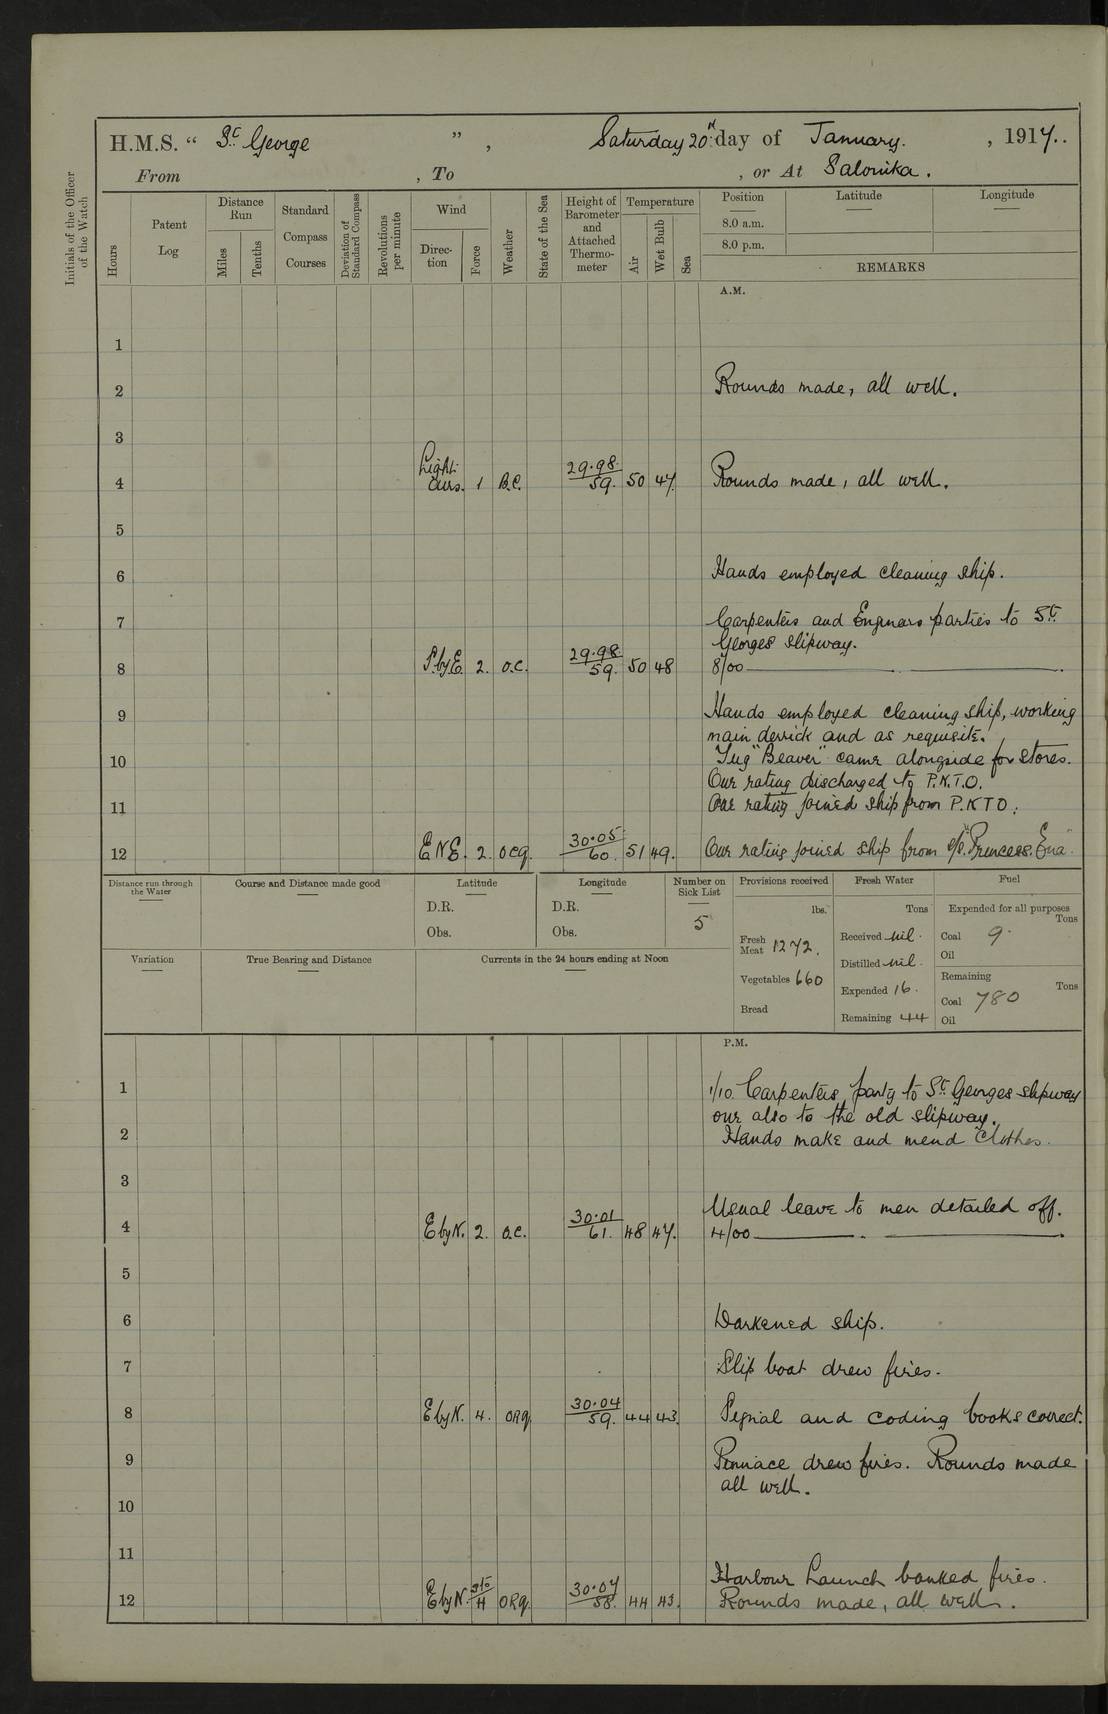 H.M.S. " St George ", Saturday 20th day of January. , 1917..
From , To , or At Salonika.
Initials of the Officer of the Watch
Hours
Patent Log
Distance Run
Miles
Tenths
Standard Compass Courses
Deviation of Standard Compass
Revolutions per minute
Wind
Direction
Force
Weather
State of the Sea
Height of Barometer and Attached Thermometer
Temperature
Air
Wet Bulb
Sea
Position Latitude Longitude
8.0 a.m.
8.0 p.m.
REMARKS
A.M.
1
2 Rounds made, all well.
3
4 Light airs. 1 B.C. 29.98 59. 50 47. Rounds made, all well.
5
6 Hands employed cleaning ship.
7 Carpenters and Engineers parties to St
Georges slipway.
8 S.byE. 2. O.C. 29.98 59. 50 48 8/00
9 Hands employed cleaning ship, working
main derrick and as requisite.
10 Tug "Beaver" came alongside for stores.
One rating discharged to P.N.T.O.
11 One rating joined ship from P.N.T.O.
12 ENE. 2. ocq. 30.05 60. 51 49. One rating joined ship from s/s. "Princess. Ena"
Distance run through the Water
Course and Distance made good
Latitude
D.R.
Obs.
Longitude
D.R.
Obs.
Number on Sick List
5
Provisions received
lbs.
Fresh Meat 1272.
Vegetables 660
Bread
Fresh Water
Tons
Received nil.
Distilled nil.
Expended 16.
Remaining 44
Fuel
Expended for all purposes
Tons
Coal 9.
Oil
Remaining
Tons
Coal 780
Oil
Variation
True Bearing and Distance
Currents in the 24 hours ending at Noon
P.M.
1 1/10. Carpenters party to St Georges slipway
one also to the old slipway.
2 Hands make and mend clothes.
3
Usual leave to men detailed off.
4 EbyN. 2. o.c. 30.01 61. 48 47. 4/00
5
6 Darkened ship.
7 Slip boat drew fires.
8 EbyN. 4. ORq. 30.04 59. 44 43. Signal and coding books correct.
9 Pinnace drew fires. Rounds made
all well.
10
11
Harbour Launch banked fires.
12 EbyN. 4 ORq. 30.07 58. 44 43. Rounds made, all well.